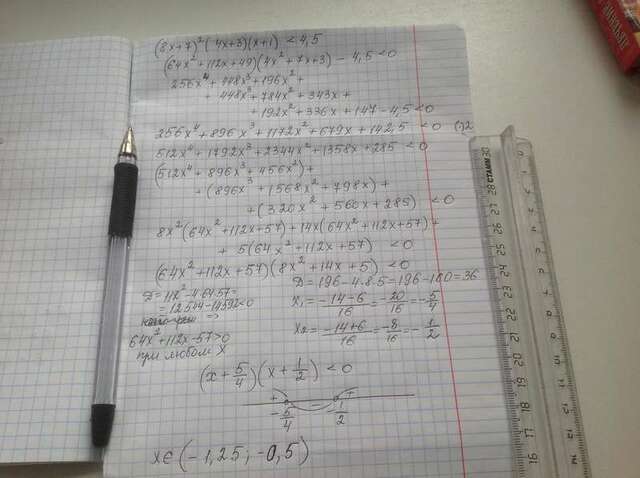 (8x+7)²(4x+3)(x+1) < 4,5
(64x²+112x+49)(4x²+7x+3) - 4,5 < 0
256x⁴+448x³+196x²+
+ 448x³+784x²+343x+
+ 192x²+336x+147-4,5<0
256x⁴+896x³+1172x²+679x+142,5 < 0 (·)2
512x⁴+1792x³+2344x²+1358x+285 < 0
(512x⁴+896x³+456x²)+
+(896x³+1568x²+798x)+
+(320x²+560x+285) < 0
8x²(64x²+112x+57)+14x(64x²+112x+57)+
+ 5(64x²+112x+57) < 0
(64x²+112x+57)(8x²+14x+5) < 0
D=112²-4·64·57=
=12544-14592<0
=>
64x²+112x-57>0
при любом x
D=196-4·8·5=196-160=36
x₁=-14-6/16=-20/16=-5/4
x₂=-14+6/16=-8/16=-1/2
(x+5/4)(x+1/2) < 0
+ - +
-5/4 -1/2
x∈(-1,25; -0,5)
СТАММ
30 29 28 27 26 25 24 23 22 21 20 19 18 17 16